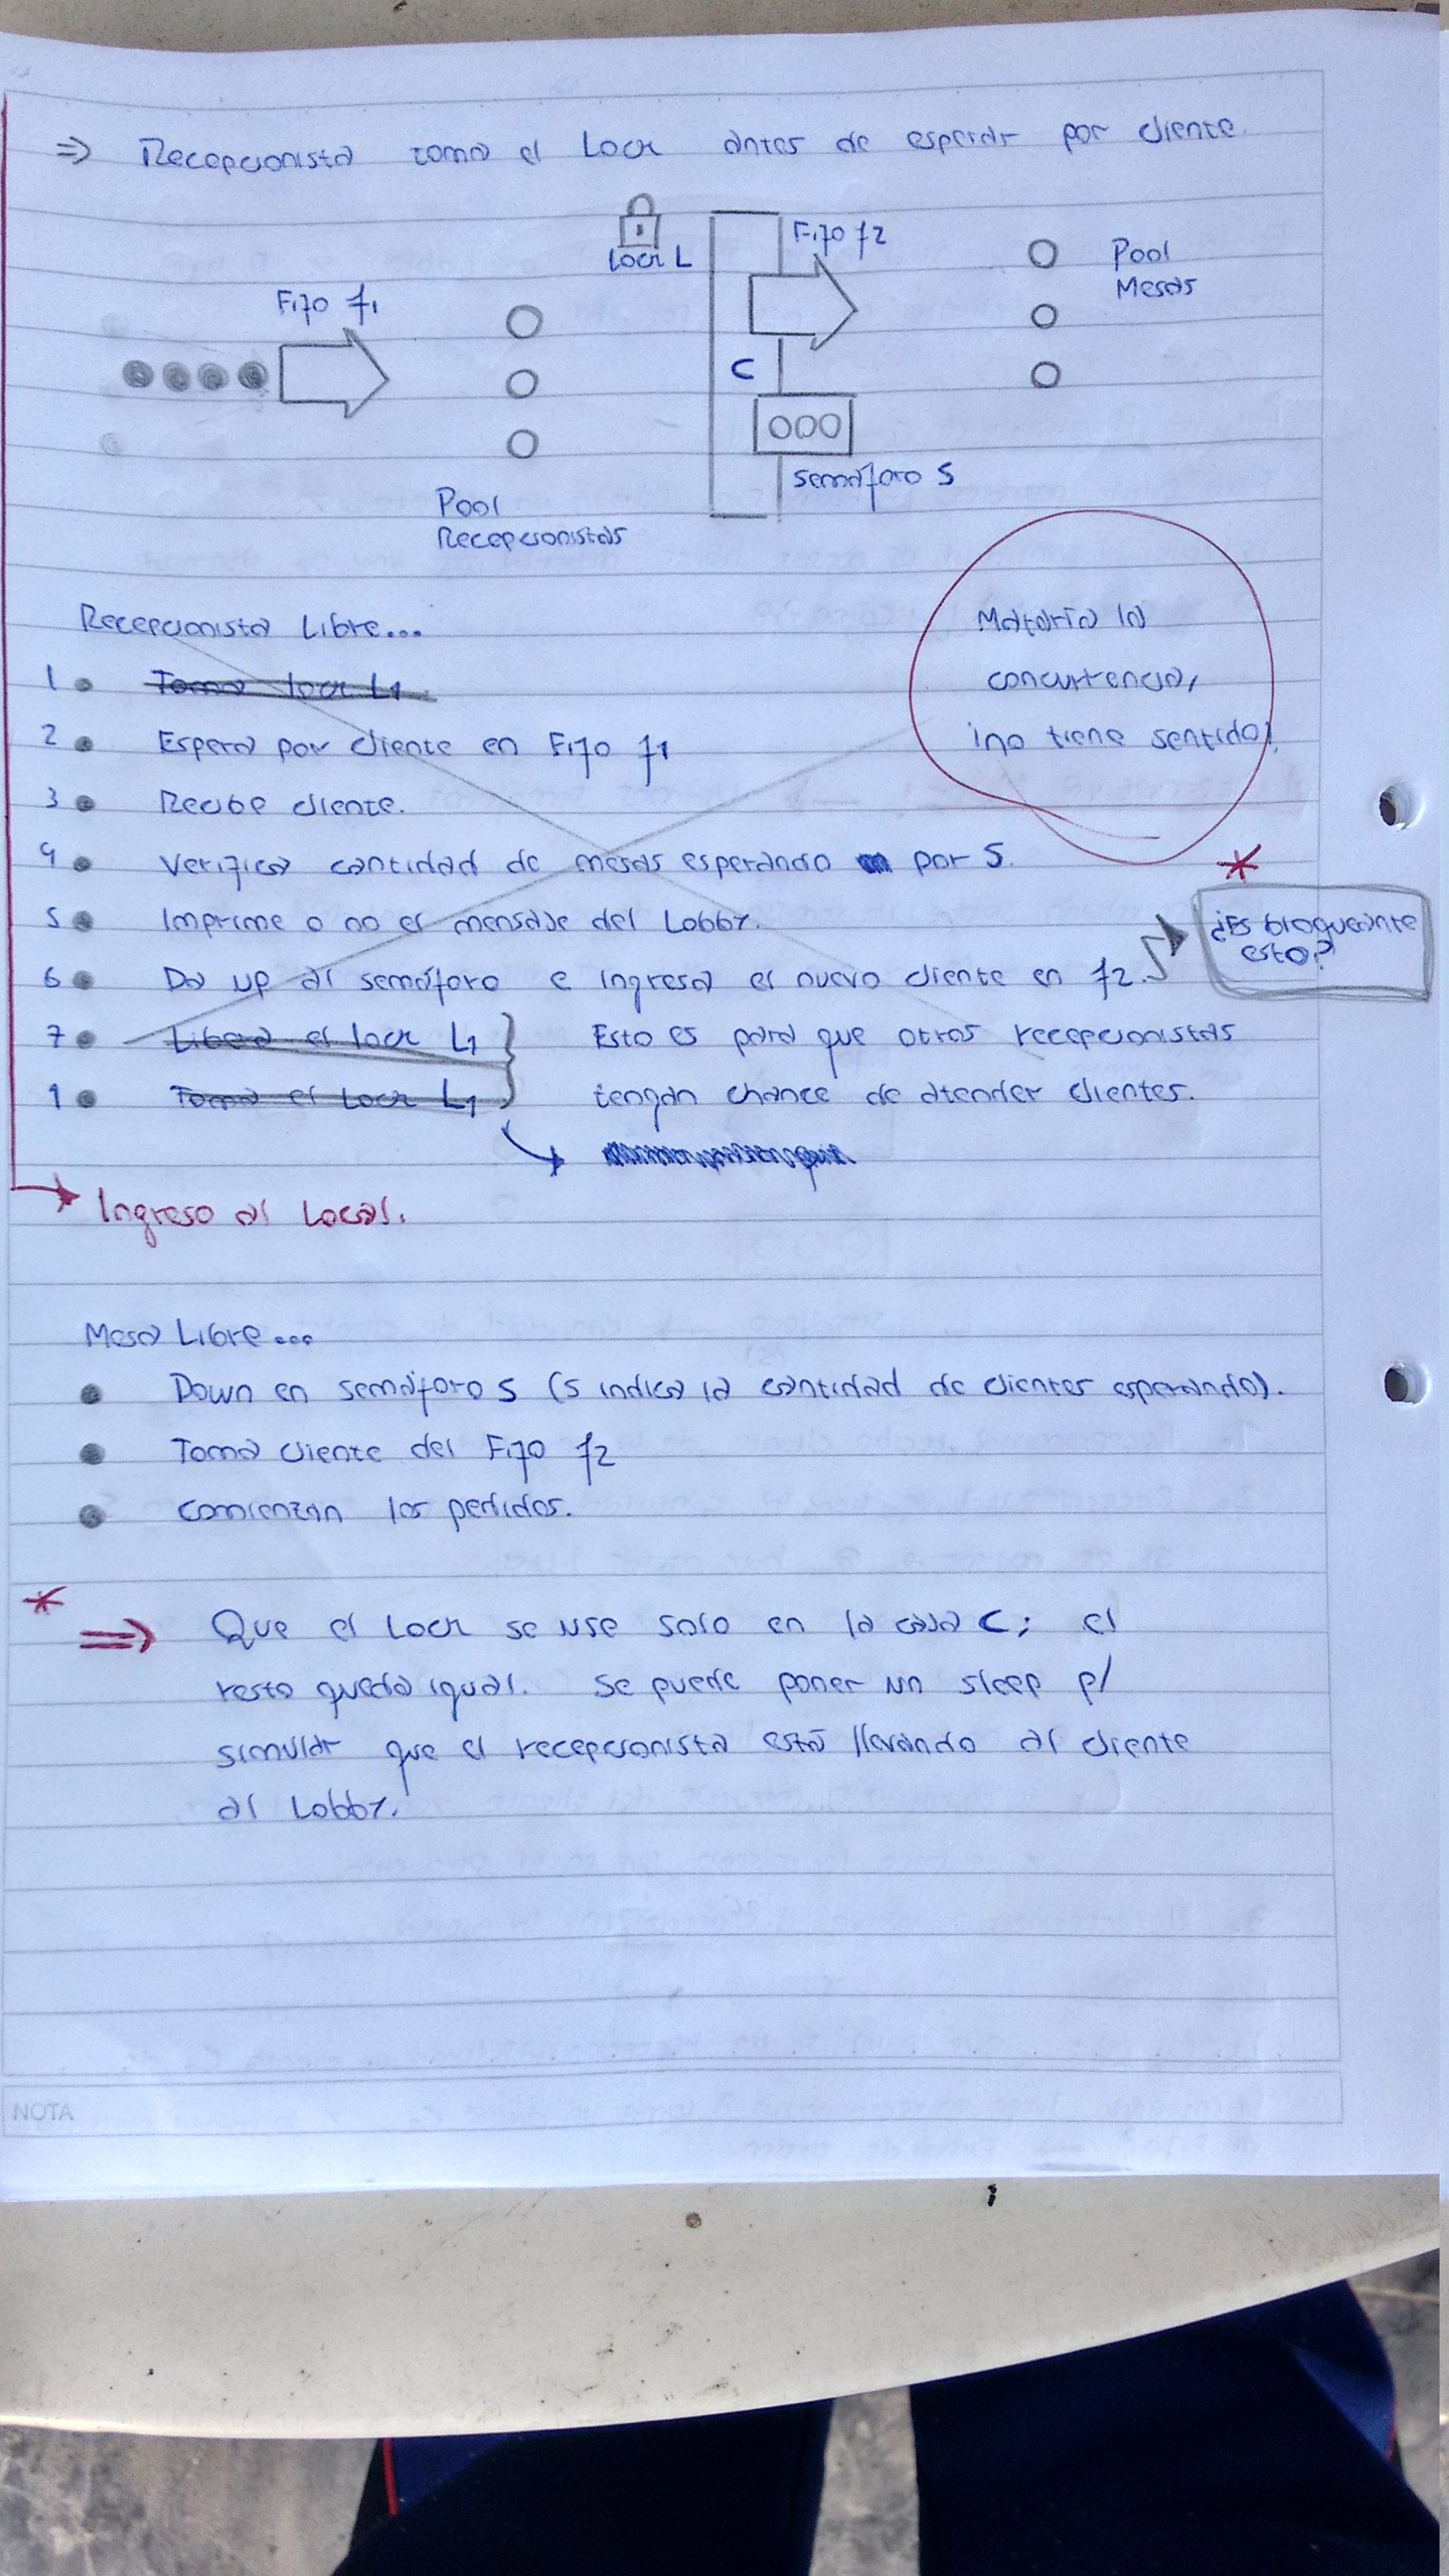 ⇒ Recepcionista toma el Lock antes de esperar por cliente.
Lock L
Fifo f2
Pool
Mesas
Fifo f1
C
Semáforo S
Pool
Recepcionistas
Recepcionista Libre...
Mataría la
concurrencia,
¡no tiene sentido!
1 • Toma lock L1.
2 • Espera por cliente en Fifo f1
3 • Recibe cliente.
4 • Verifica cantidad de mesas esperando por S.
5 • Imprime o no el mensaje del Lobby.
6 • Da up al semáforo e ingresa el nuevo cliente en f2.
*
¿Es bloqueante
esto?
7 • Libera el lock L1 } Esto es para que otros recepcionistas
1 • Toma el Lock L1 tengan chance de atender clientes.
Ingreso al Local.
Mesa Libre...
• Down en semáforo S (S indica la cantidad de clientes esperando).
• Toma cliente del Fifo f2
• Comienzan los pedidos.
* ⇒ Que el Lock se use solo en la caja C; el
resto queda igual. Se puede poner un sleep p/
simular que el recepcionista está llevando al cliente
al Lobby.
NOTA